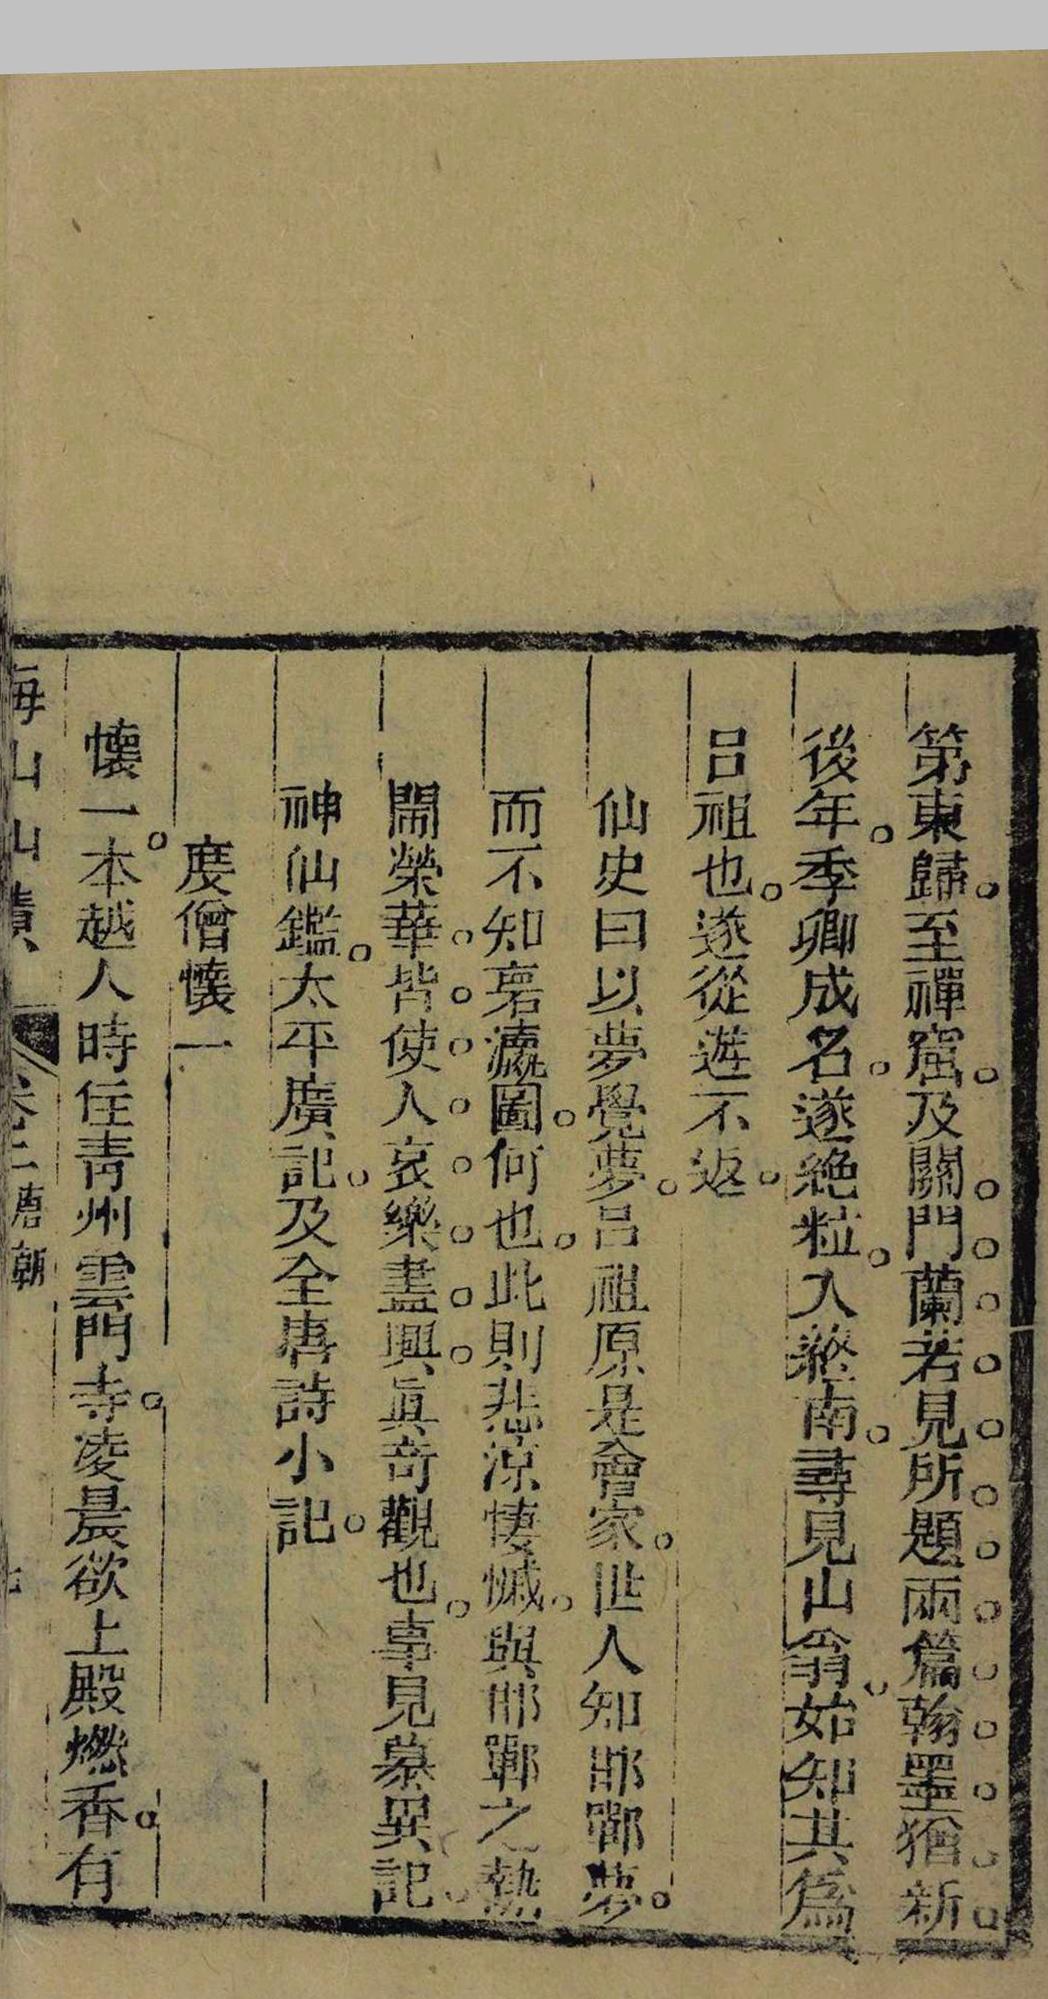 第東歸。至禪窟。及關。門。蘭。若。見。所。題。兩。篇。翰。墨。猶。新。
後年。季卿成名。遂絶粒。入終南。尋見山翁。始知其爲
呂祖也。遂從遊不返。
仙史曰以夢覺夢。呂祖原是會家。世人知邯鄲夢。
而不知寰瀛圖。何也。此則悲涼悽慽。與邯鄲之熱
鬧榮華。皆。使。人。哀。樂。盡。興。眞奇觀也。事見纂異記。
神仙鑑。太平廣記。及全唐詩小記。
度僧懷一
懷一。本越人時住靑州雲門寺。凌晨欲上殿燃香。有
海山山 卷二唐朝